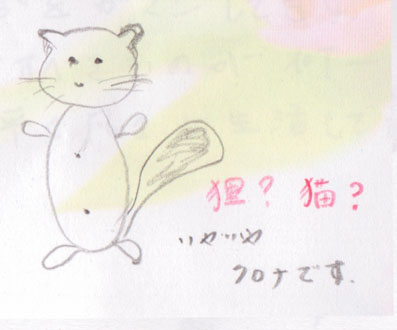 狸? 猫?
いやいや
クロナです.